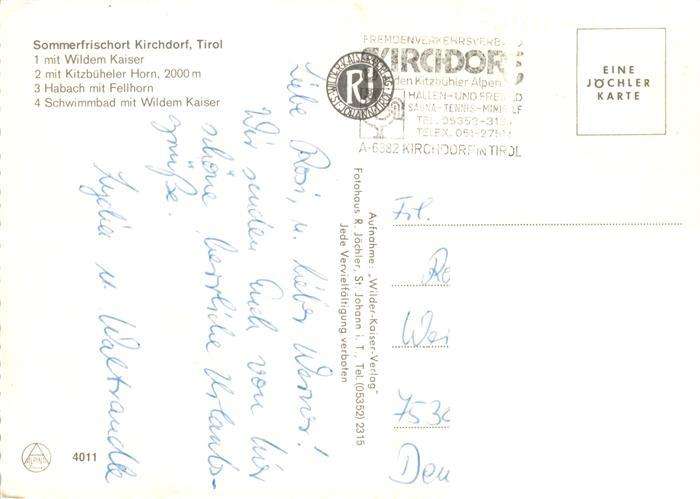 Sommerfrischort Kirchdorf, Tirol
1 mit Wildem Kaiser
2 mit Kitzbüheler Horn, 2000 m
3 Habach mit Fellhorn
4 Schwimmbad mit Wildem Kaiser
FREMDENVERKEHRSVERB
KIRCHDORF
den Kitzbühler Alpen
HALLEN- UND FREI
SAUNA-TENNIS-MINI
TEL. 05352-31
TELEX. 051-275
A-6382 KIRCHDORF IN TIROL
WILDER-KAISER-VERLAG
RJ
ST. JOHANN TIROL
EINE
JÖCHLER
KARTE
Liebe Rosi, u. lieber Werner!
Wir senden Euch von hier
schöne herrliche Urlaubs-
grüße.
Lydia u. Waltraudle
Aufnahme: „Wilder-Kaiser-Verlag"
Fotohaus R. Jöchler, St. Johann i. T., Tel. (05352) 2315
Jede Vervielfältigung verboten
Frl.
Ro
Wei
753
Deu
4011